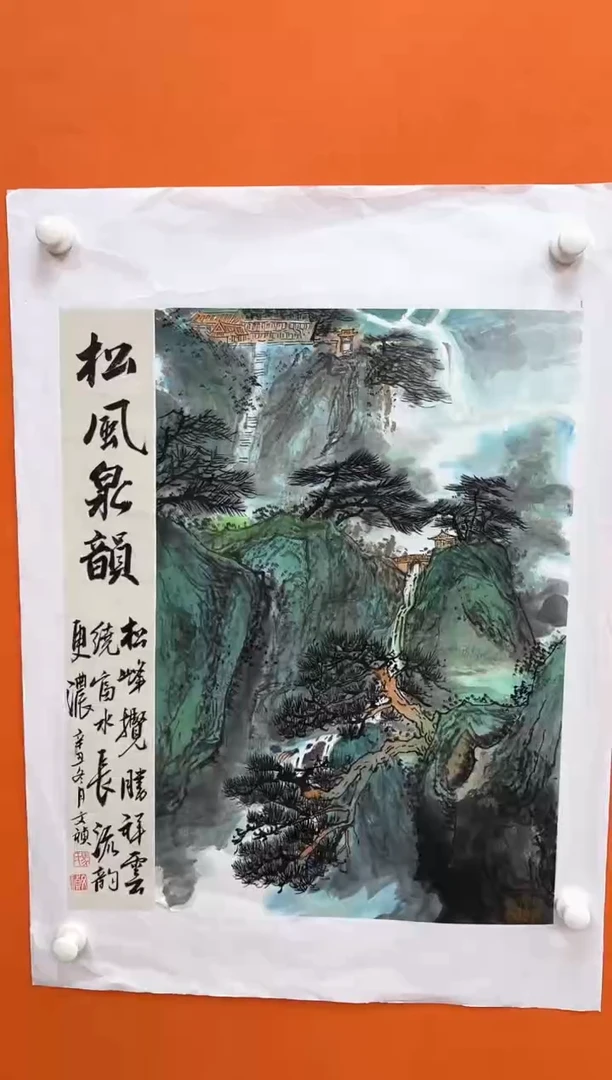 松風泉韻
松峰攬勝祥雲
繞富水長流韵
更濃
辛丑冬月文禎